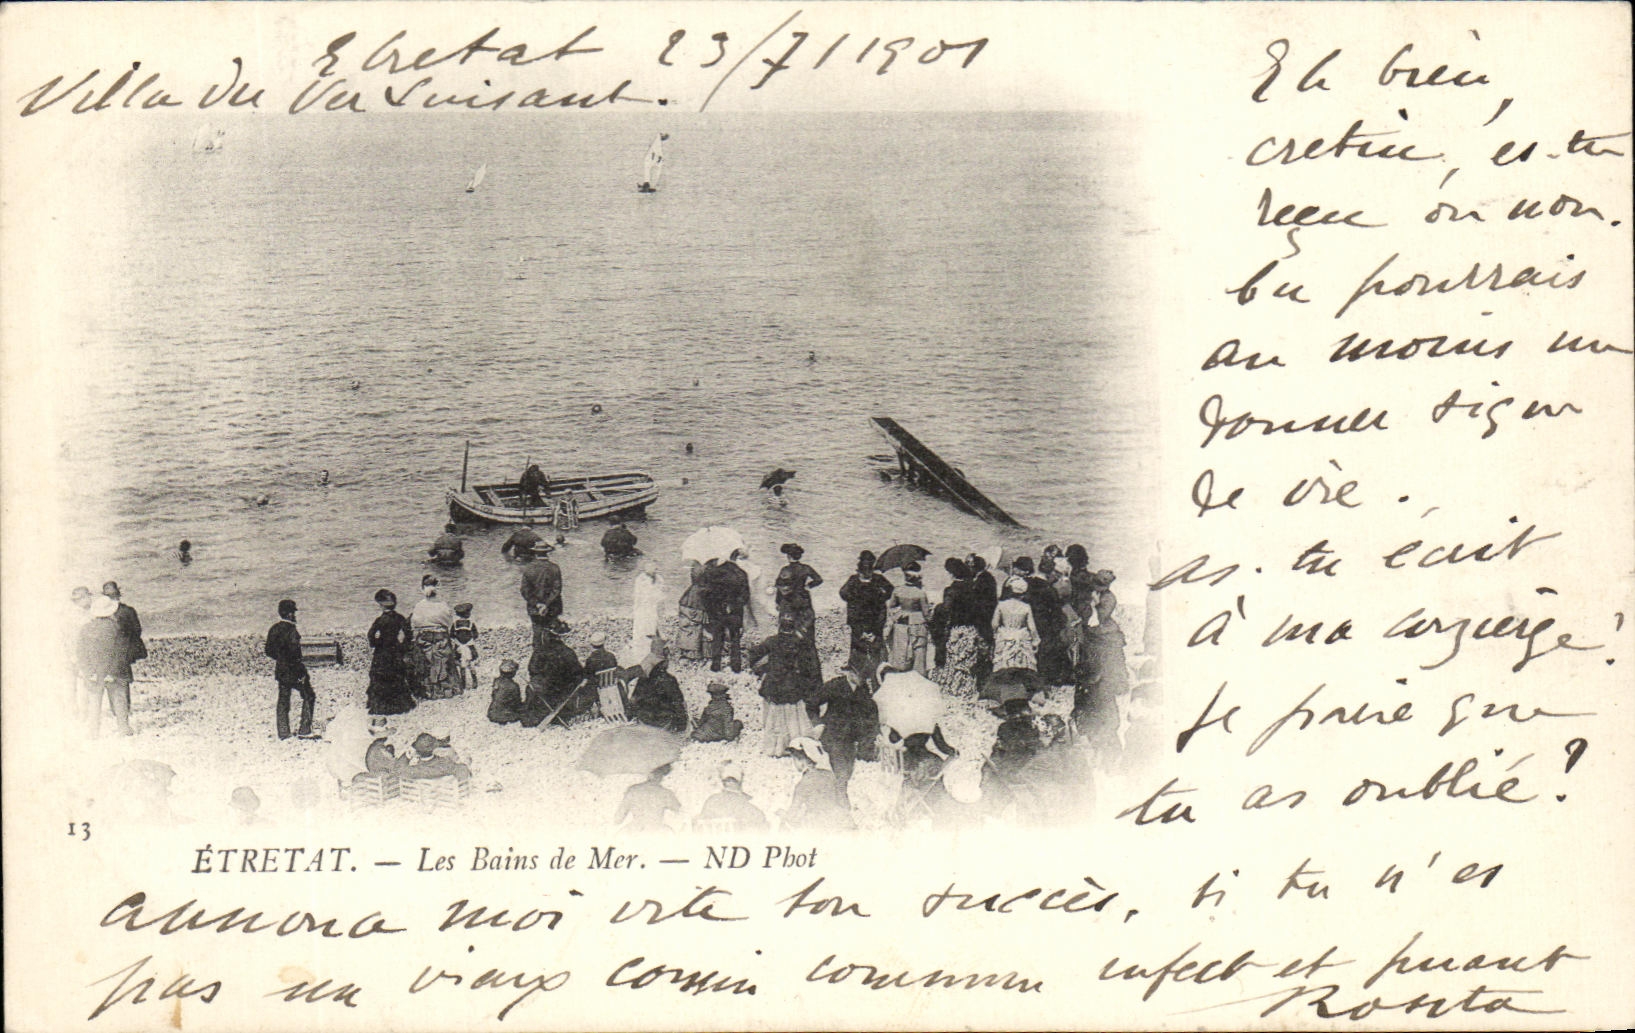 Etretat 23/7/1901
Villa du Ver Luisant.
Eh bien,
cretin, es-tu
reçu ou non.
tu pourrais
au moins me
donner signe
de vie.
as-tu écrit
à ma concierge?
Je parie que
tu as oublié?
13
ÉTRETAT. — Les Bains de Mer. — ND Phot
annonce moi vite ton succès, si tu n'es
pas un vieux cousin commun infect et puant